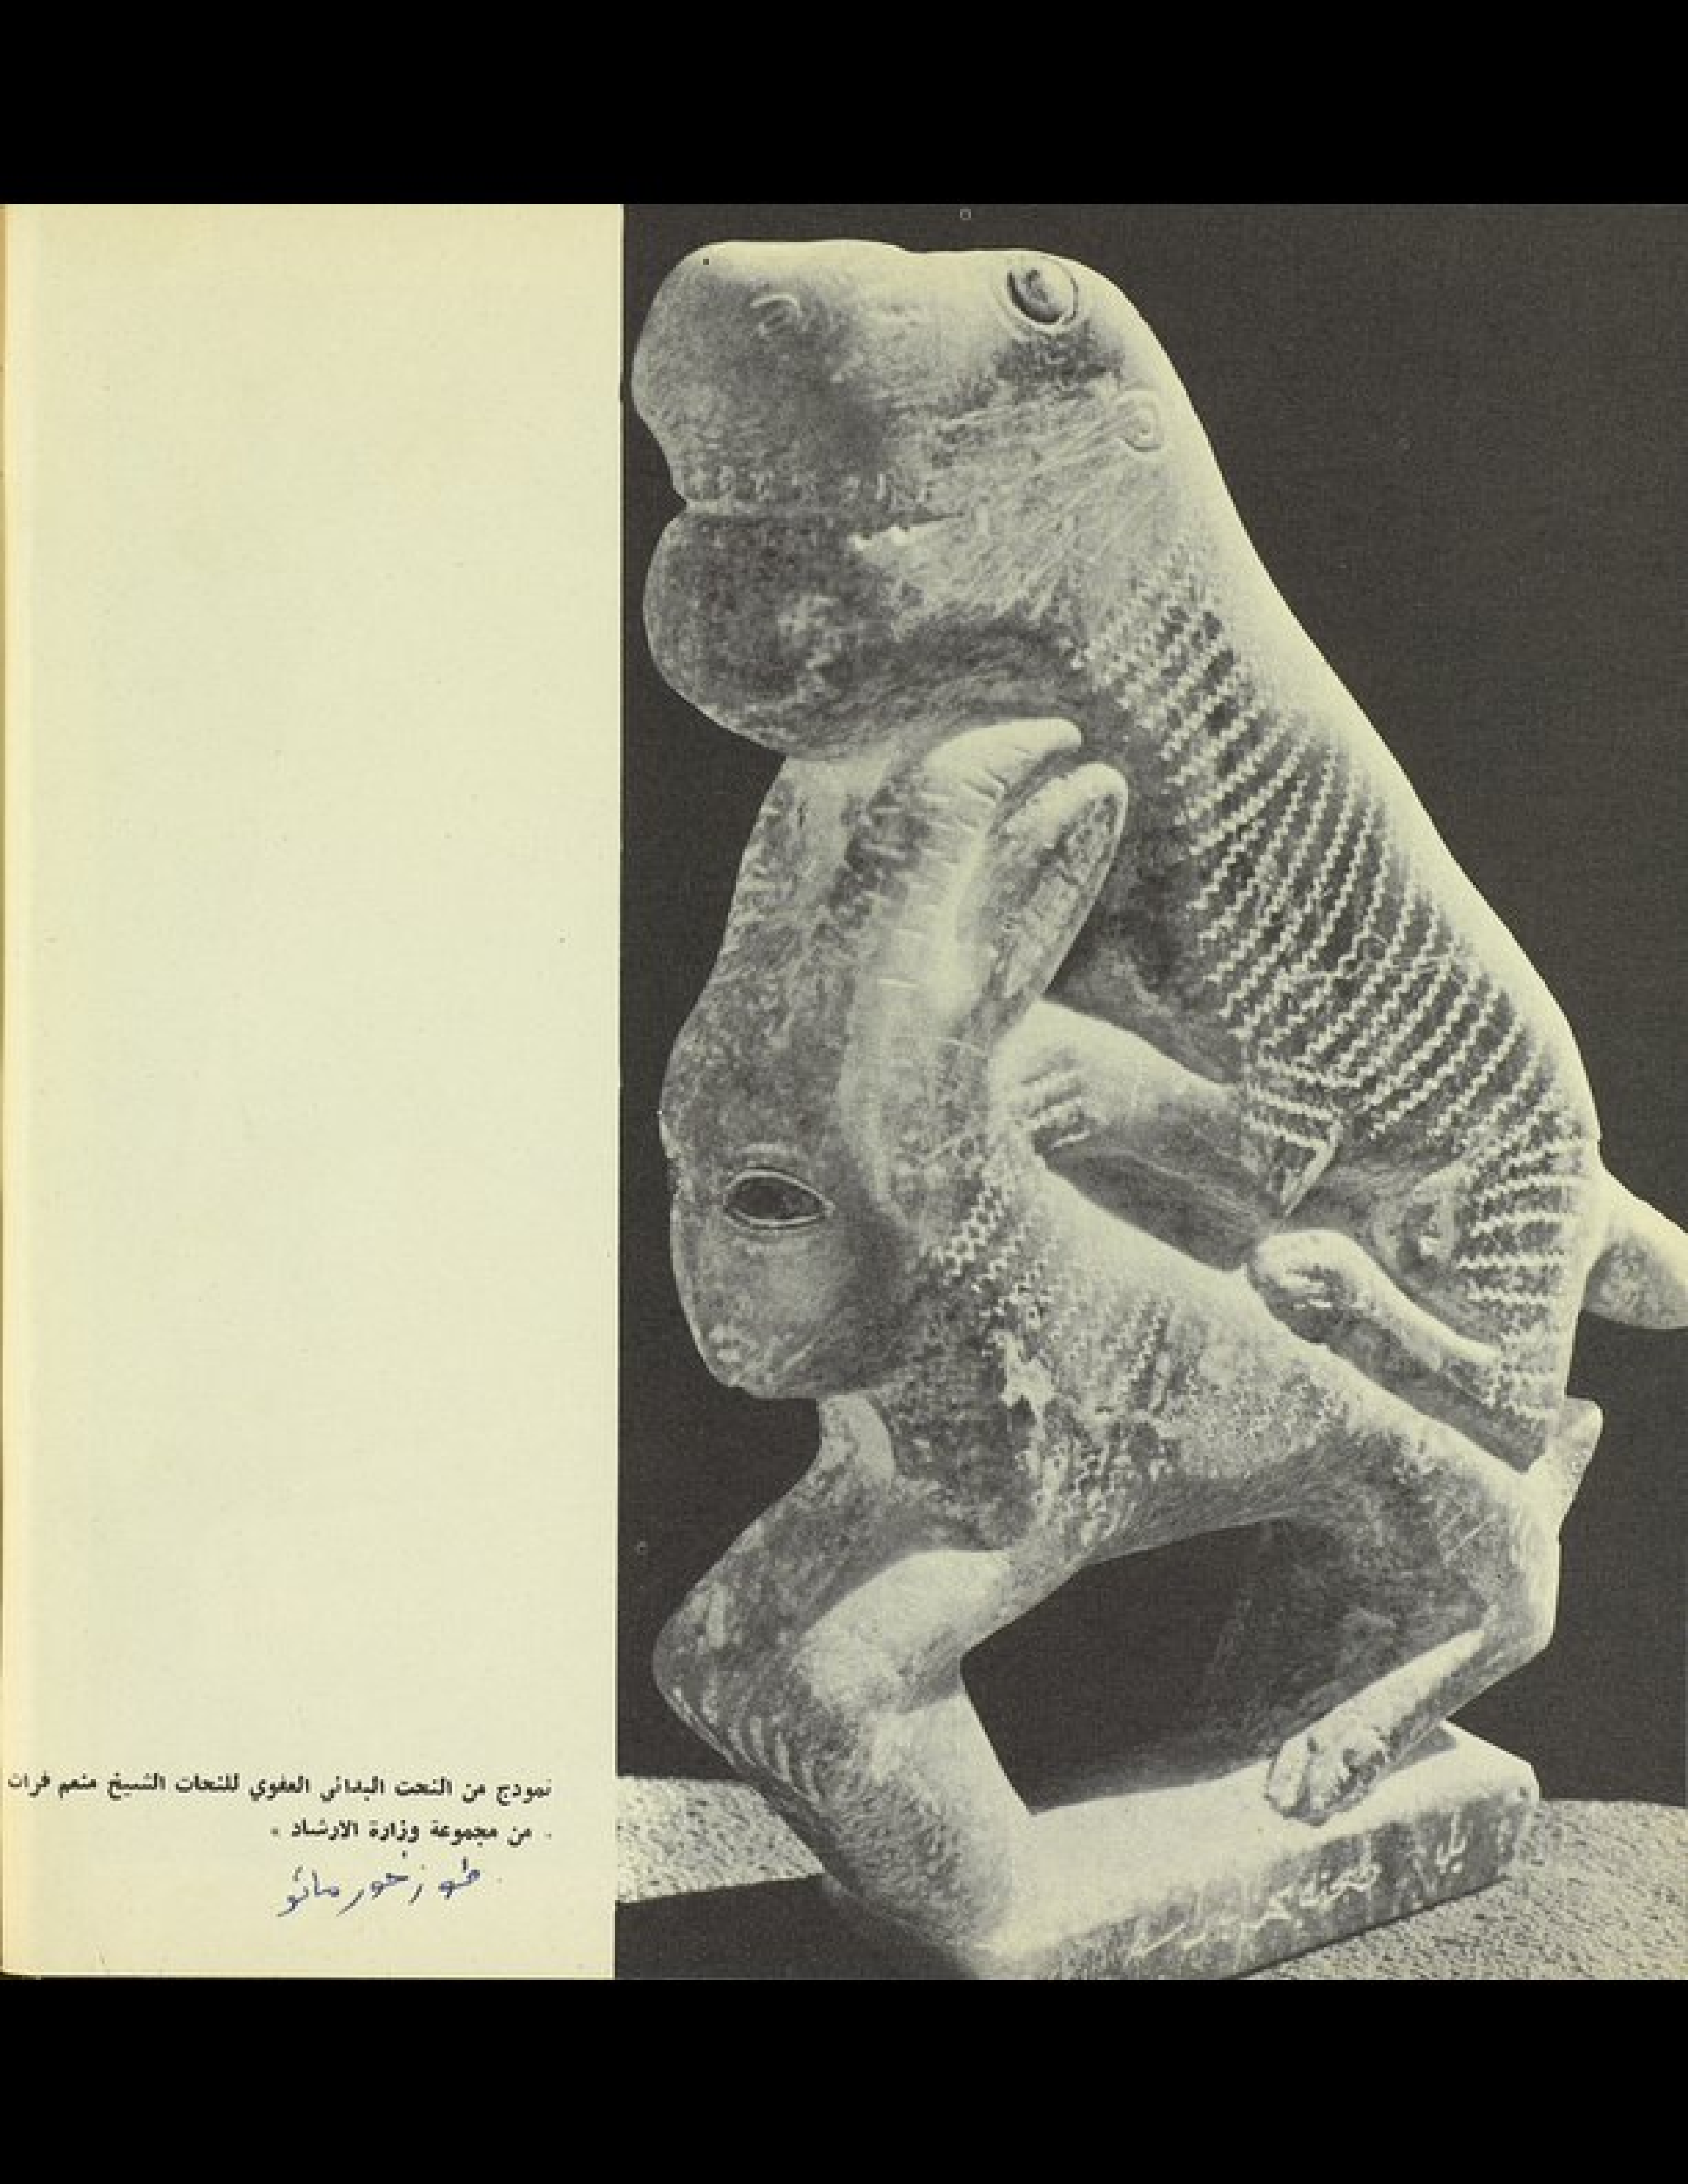 نموذج من النحت البدائي العفوي للنحات الشيخ منعم فرات
من مجموعة وزارة الارشاد
طوز خورماتو